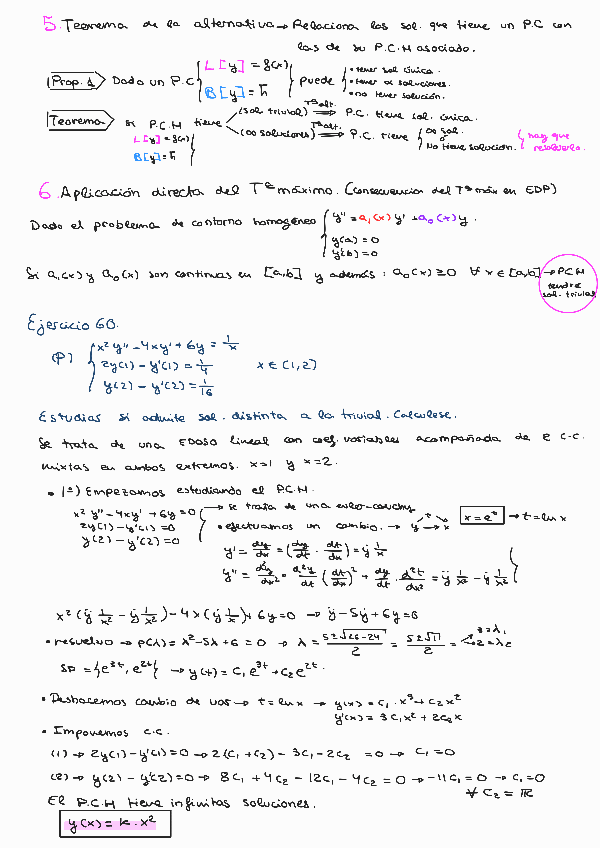 5. Teorema de la alternativa → Relaciona las sol. que tiene un P.C con
las de su P.C.H asociado.
Prop. 1 Dado un P.C { L[y] = g(x) B[y] = h } puede { • tener sol única.
• tener ∞ soluciones.
• no tener solución.
Teorema Si P.C.H tiene (sol trivial) ⟹ Tª alt. P.C. tiene sol. única.
(∞ soluciones) ⟹ Tª alt. P.C. tiene { ∞ sol. o No tiene solución. { hay que resolverlo.
L[y] = g(x)
B[y] = h
6. Aplicación directa del Tª máximo. (Consecuencia del Tª máx en EDP)
Dado el problema de contorno homogéneo { y'' = a₁(x) y' + a₀(x) y.
y(a) = 0
y(b) = 0
Si a₁(x) y a₀(x) son continuas en [a,b] y además: a₀(x) ≥ 0 ∀ x ∈ [a,b] → P.C.H
tendrá
sol. trivial
Ejercicio 60.
(P) { x² y'' - 4xy' + 6y = 1/x
2y(1) - y'(1) = 1/4 x ∈ (1,2)
y(2) - y'(2) = 1/16
Estudiar si admite sol. distinta a la trivial. Calculese.
Se trata de una EDO50 lineal con coef. variables acompañada de 2 C.C.
mixtas en ambos extremos. x=1 y x=2.
• 1º) Empezamos estudiando el P.C.H.
x² y'' - 4xy' = 0 → se trata de una euler-cauchy
2y(1) - y'(1) = 0 • efectuamos un cambio. → y t x x = eᵗ → t = ln x
y(2) - y'(2) = 0
y' = dy/dx = (dy/dt · dt/dx) = ẏ 1/x
y'' = dy/dx² = d²y/dt (dt/dx)² + dy/dt · d²t/dx² = ÿ 1/x² - ẏ 1/x²
x² (ÿ 1/x² - ẏ 1/x²) - 4x (ẏ 1/x) + 6y = 0 → ÿ - 5ẏ + 6y = 0
• resuelvo → P(λ) = λ² - 5λ + 6 = 0 → λ = 5 ± √25-24 / 2 = 5 ± √1 / 2 = 3 = λ₁ 2 = λ₂
SF = {e³ᵗ, e²ᵗ} → y(t) = C₁ e³ᵗ + C₂ e²ᵗ.
• Deshacemos cambio de var → t = ln x → y(x) = C₁ · x³ + C₂ x²
y'(x) = 3C₁x² + 2C₂x
• Imponemos c.c.
(1) → 2y(1) - y'(1) = 0 → 2(C₁ + C₂) - 3C₁ - 2C₂ = 0 → C₁ = 0
(2) → y(2) - y'(2) = 0 → 8C₁ + 4C₂ - 12C₁ - 4C₂ = 0 → -11C₁ = 0 → C₁ = 0
∀ C₂ = ℝ
El P.C.H tiene infinitas soluciones.
y(x) = k · x²